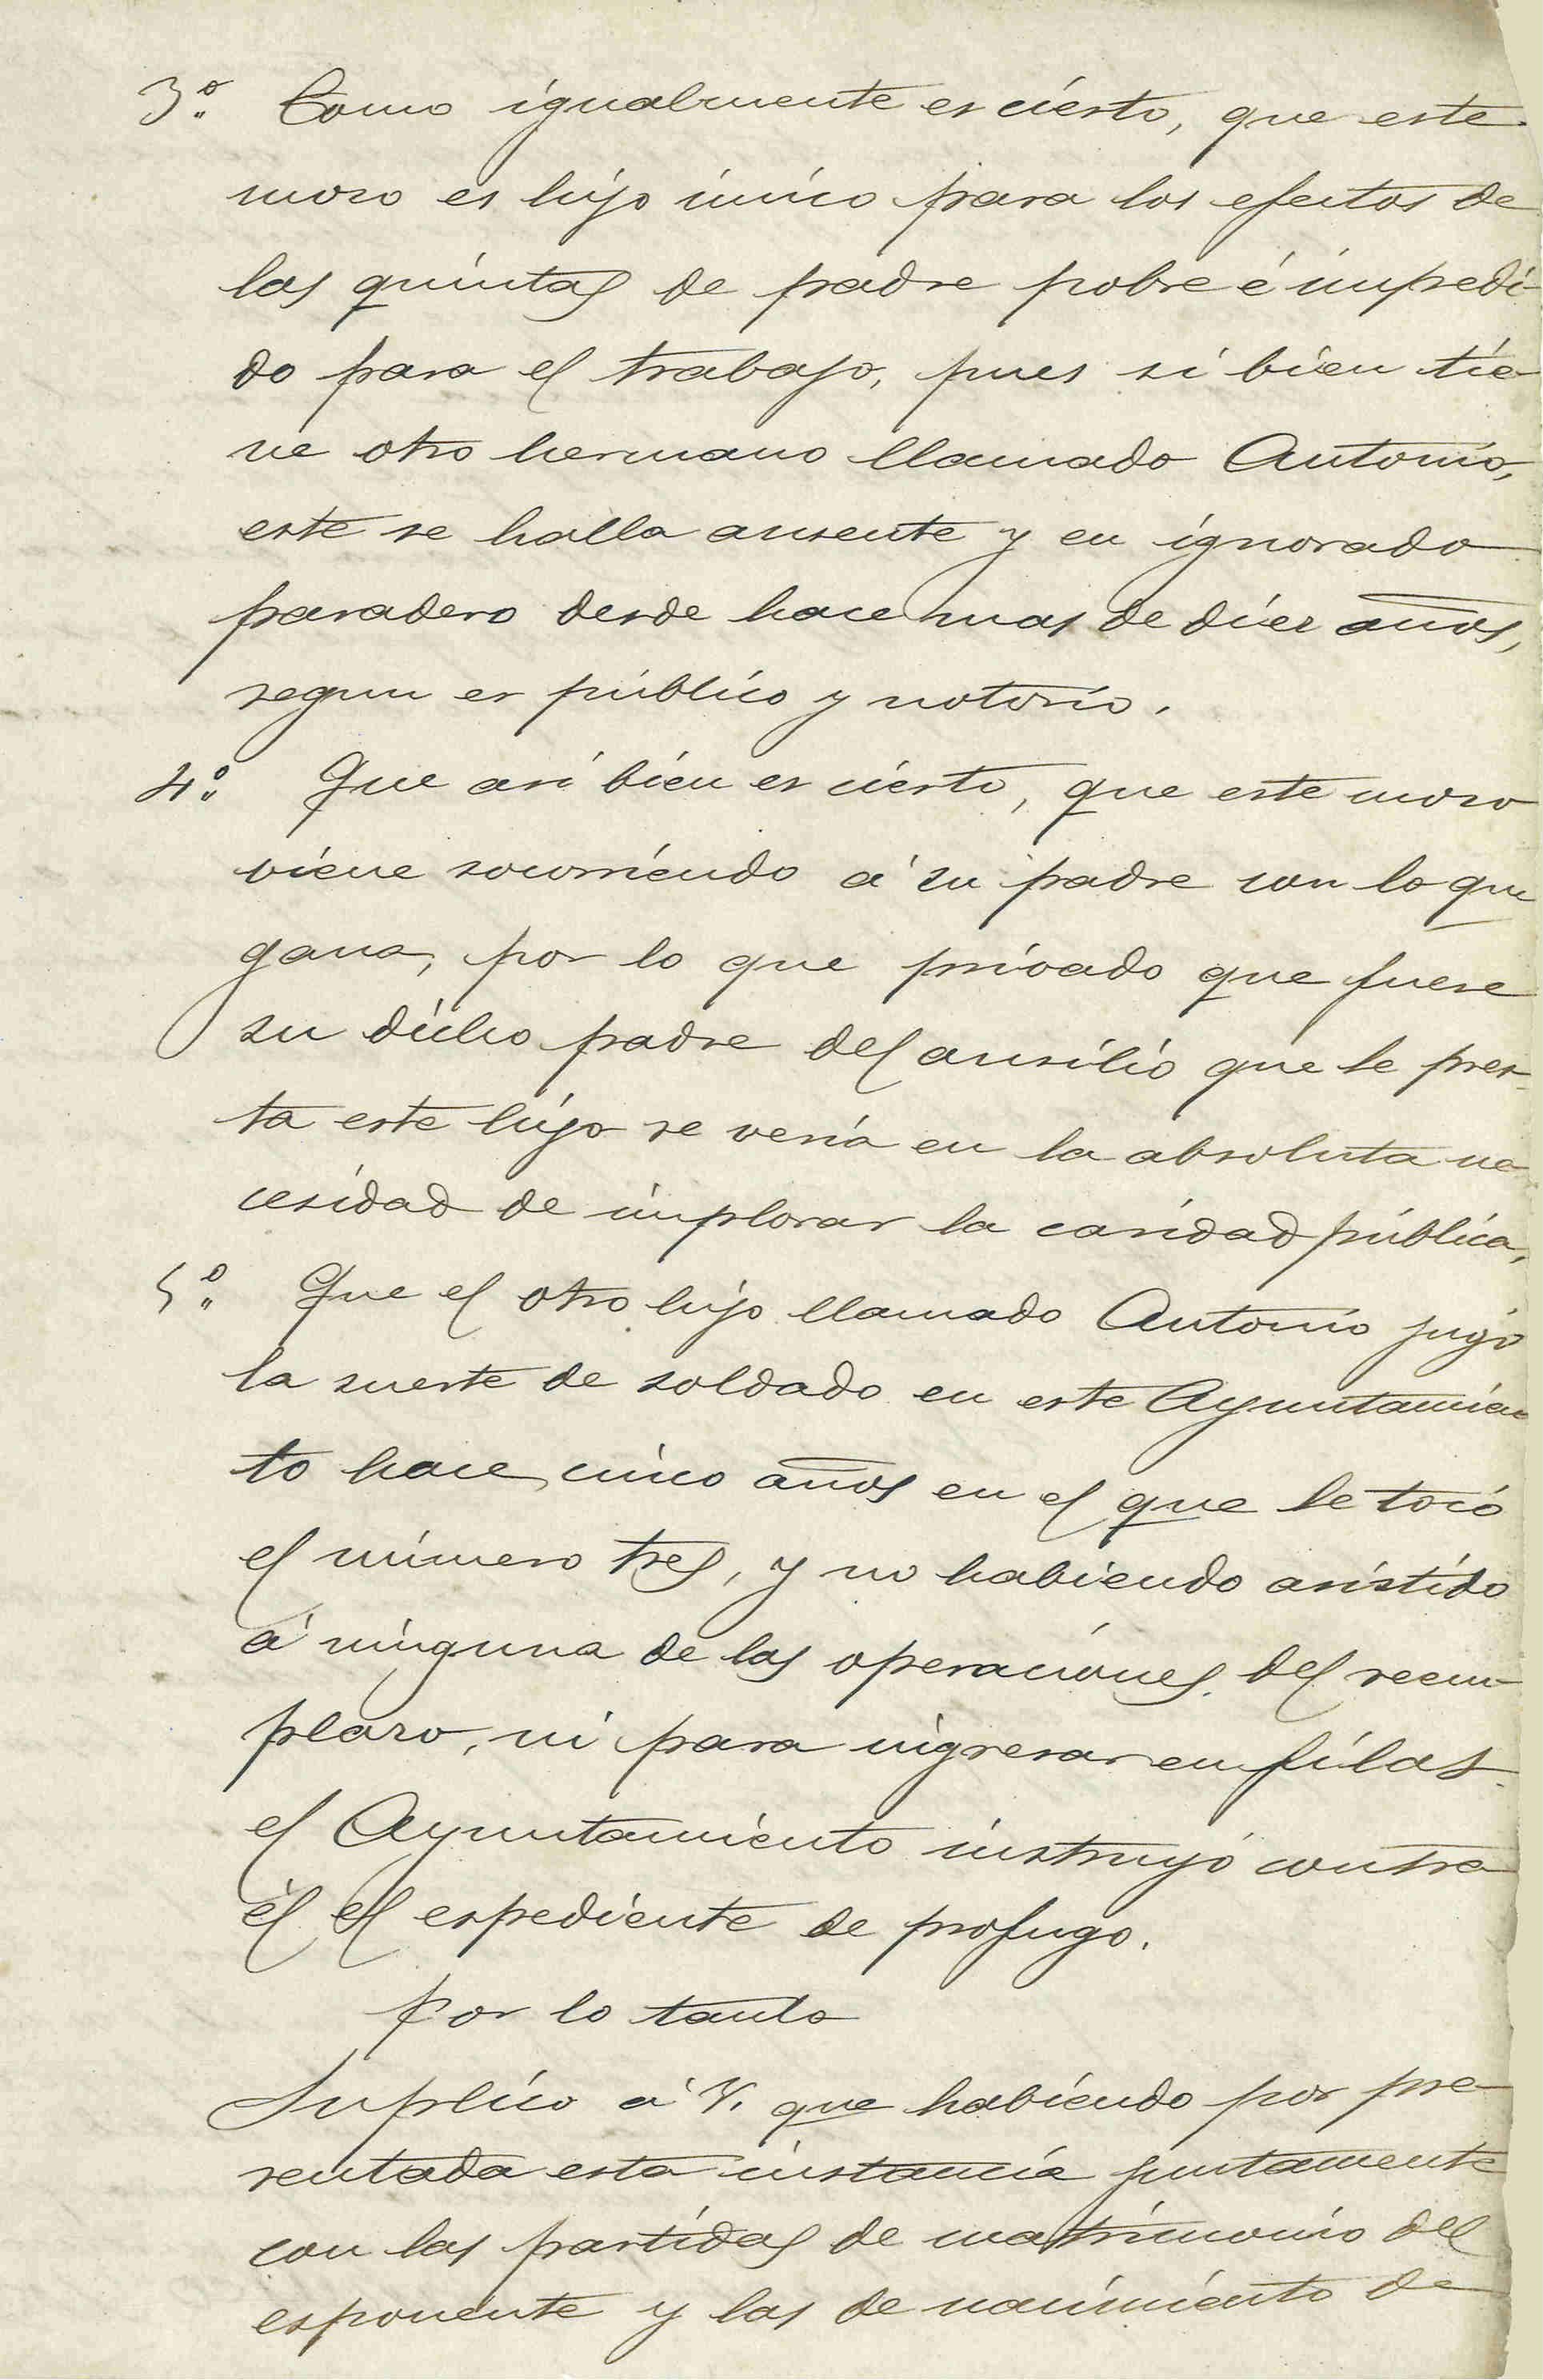 3º Como igualmente es cierto, que este
mozo es hijo único para los efectos de
las quintas de padre pobre é impedi-
do para el trabajo, pues si bien tie-
ne otro hermano llamado Antonio,
este se halla ausente y en ignorado
paradero desde hace mas de diez años,
segun es público y notorio.
4º Que asi bien es cierto, que este mozo
viene socorriendo á su padre con lo que
gana, por lo que privado que fuese
su dicho padre del ausilio que le pres-
ta este hijo se vería en la absoluta ne-
cesidad de implorar la caridad pública,
5º Que el otro hijo llamado Antonio jugó
la suerte de soldado en este Ayuntamien
to hace cinco años en el que le tocó
el número tres, y no habiendo asistido
á ninguna de las operaciones del reem-
plazo, ni para ingresar en filas
el Ayuntamiento instruyó contra
él el espediente de profugo.
Por lo tanto
Suplico á V. que habiendo por pre-
sentada esta instancia juntamente
con las partidas de matrimonio del
esponente y las de nacimiento de